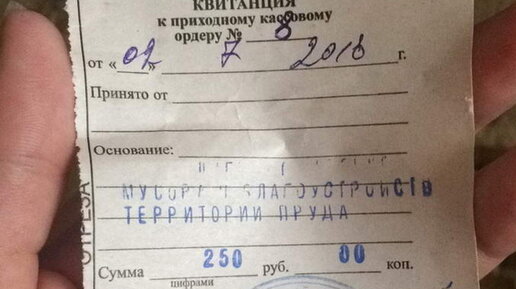 КВИТАНЦИЯ
к приходному кассовому
ордеру № 8
от «02» 7 2016 г.
Принято от
Основание:
МУСОРА БЛАГОУСТРОЙСТВ
ТЕРРИТОРИИ ПРУДА
Сумма 250 руб. 00 коп.
цифрами
ОТРЕЗА